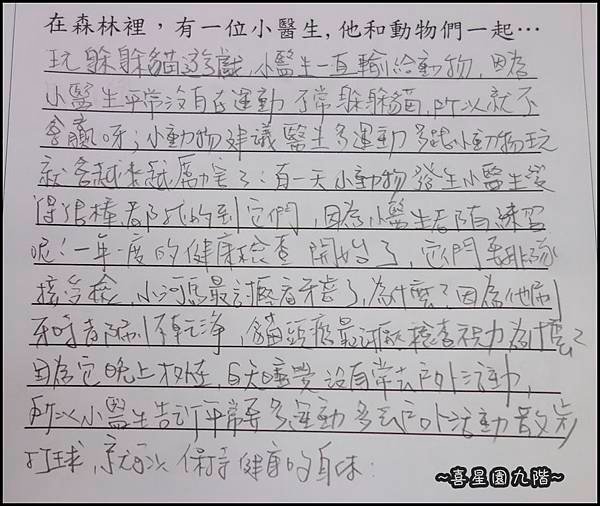 在森林裡，有一位小醫生，他和動物們一起…
玩躲躲貓遊戲，小醫生一直輸給動物，因為
小醫生平常沒有在運動 不常躲躲貓，所以就不
會贏呀；小動物建議醫生多運動 多跟小動物玩
就會越來越厲害了：有一天小動物發生小醫生變
得很棒，都找的到它們，因為小醫生都有練習
呢！一年一度的健康檢查 開始了，它們要排隊
接受檢，小河馬最討厭看牙齒了，為什麼？因為他刷
牙時都刷不乾淨，貓頭鷹最討厭檢查視力為什麼？
因為它晚上 白天睡覺 沒有常去戶外活動，
所以小醫生告訴平常要多運動 多去戶外活動 散步
打球，就可以保持健康的身体：
~喜星園九階~